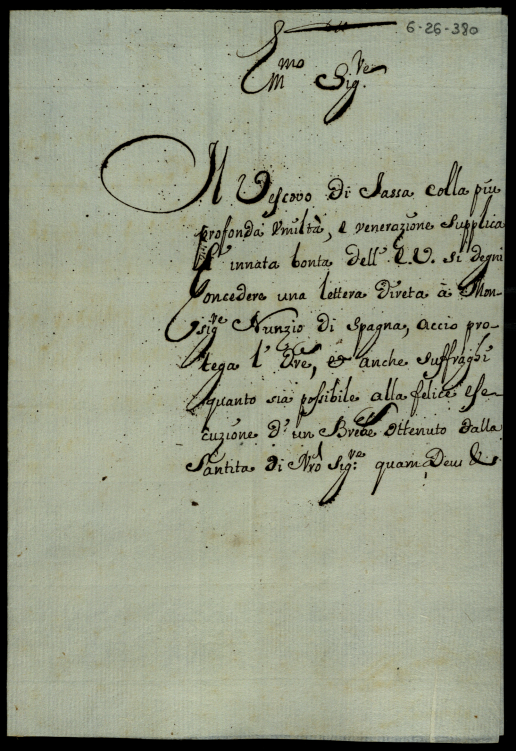 6-26-380
Em̃o Sig.re
Il Vescovo di Jassa colla piu
profonda Umiltà, e venerazione supplica
l' innata bonta dell' E.V. si degni
Concedere una lettera direta à Mon-
sig.re Nunzio di Spagna, accio pro-
tega l' Ore, & anche suffraghi
quanto sia possibile alla felice ese-
cuzione d' un Breve ottenuto dalla
Santita di Nro Sig.re quam Deus &c